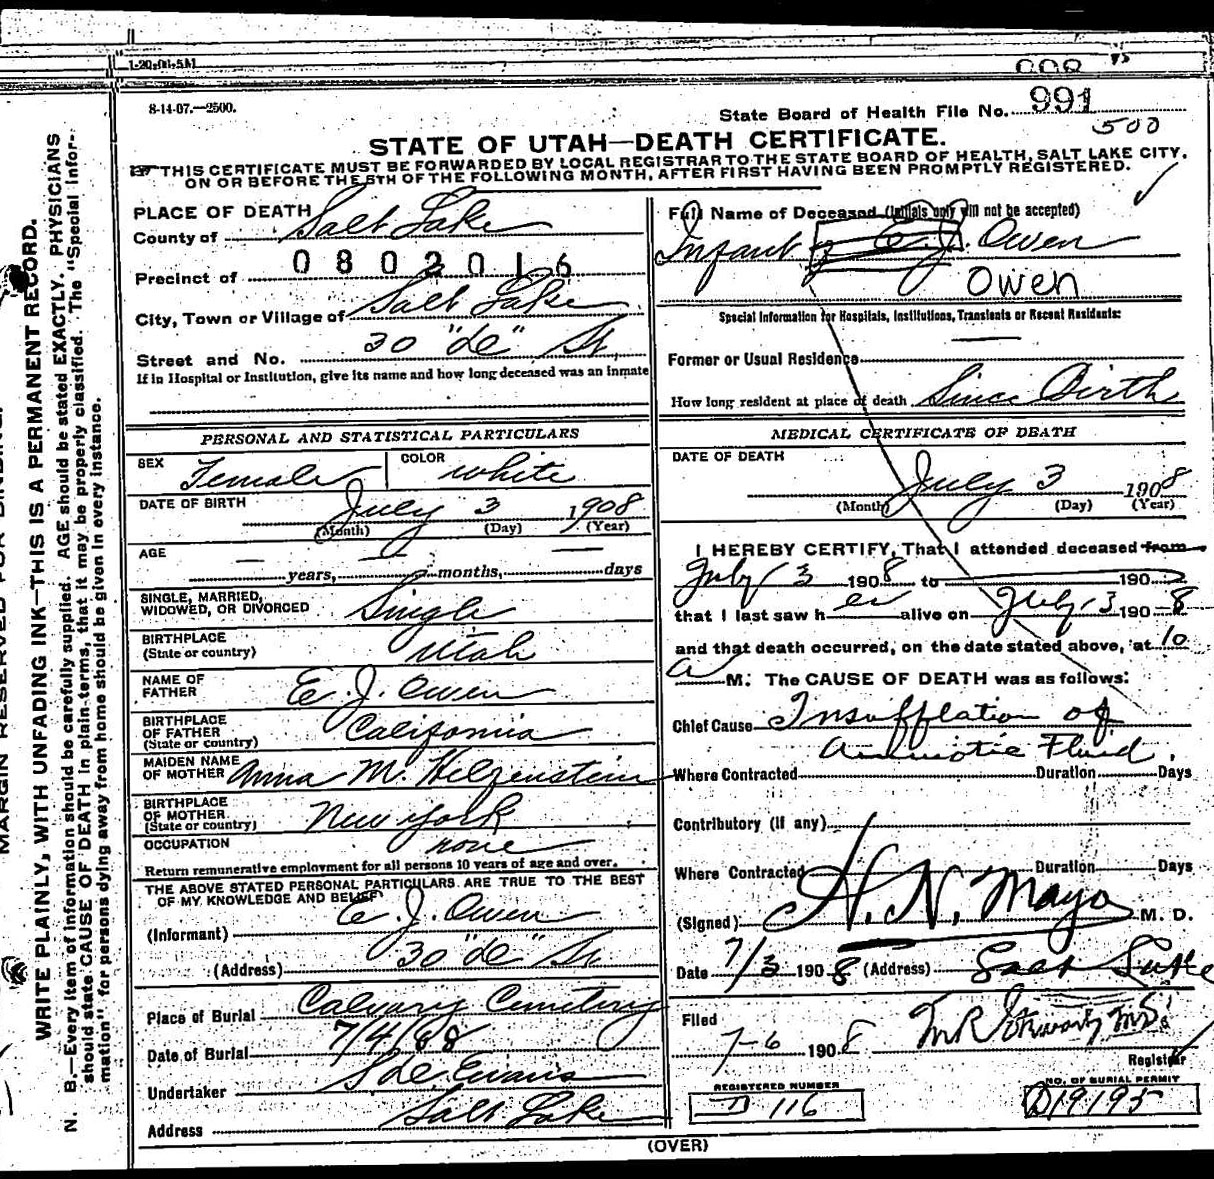 1-20-08-5M
8-14-07.—2500.
State Board of Health File No. 991
500
STATE OF UTAH—DEATH CERTIFICATE.
THIS CERTIFICATE MUST BE FORWARDED BY LOCAL REGISTRAR TO THE STATE BOARD OF HEALTH, SALT LAKE CITY,
ON OR BEFORE THE 5TH OF THE FOLLOWING MONTH, AFTER FIRST HAVING BEEN PROMPTLY REGISTERED.
PLACE OF DEATH
County of Salt Lake
Precinct of 0802016
City, Town or Village of Salt Lake
Street and No. 30 St
If in Hospital or Institution, give its name and how long deceased was an inmate
PERSONAL AND STATISTICAL PARTICULARS
SEX Female COLOR White
DATE OF BIRTH July 3 1908
(Month) (Day) (Year)
AGE — — —
years, months, days
SINGLE, MARRIED,
WIDOWED, OR DIVORCED Single
BIRTHPLACE
(State or country) Utah
NAME OF
FATHER E. J. Owen
BIRTHPLACE
OF FATHER
(State or country) California
MAIDEN NAME
OF MOTHER Anna M. Hilgenstein
BIRTHPLACE
OF MOTHER
(State or country) New York
OCCUPATION none
Return remunerative employment for all persons 10 years of age and over.
THE ABOVE STATED PERSONAL PARTICULARS ARE TRUE TO THE BEST
OF MY KNOWLEDGE AND BELIEF
(Informant) E. J. Owen
(Address) 30 St
Place of Burial Calvary Cemetery
Date of Burial 7/4/08
Undertaker Evans
Address Salt Lake
Full Name of Deceased (Initials only will not be accepted)
Infant of E. J. Owen
Owen
Special Information for Hospitals, Institutions, Transients or Recent Residents:
Former or Usual Residence
How long resident at place of death Since Birth
MEDICAL CERTIFICATE OF DEATH
DATE OF DEATH
July 3 1908
(Month) (Day) (Year)
I HEREBY CERTIFY, That I attended deceased from
July 3 1908 to 190
that I last saw her alive on July 3 1908
and that death occurred, on the date stated above, at 10
a M. The CAUSE OF DEATH was as follows:
Chief Cause Insufflation of
Amniotic Fluid.
Where Contracted Duration Days
Contributory (if any)
Where Contracted Duration Days
(Signed) H. N. Mayo M. D.
Date 7/3 1908 (Address) Salt Lake
Filed
7-6 1908
Registrar
REGISTERED NUMBER
D 116
NO. OF BURIAL PERMIT
D19195
(OVER)
WRITE PLAINLY, WITH UNFADING INK—THIS IS A PERMANENT RECORD.
N. B.—Every item of information should be carefully supplied. AGE should be stated EXACTLY. PHYSICIANS
should state CAUSE OF DEATH in plain terms, that it may be properly classified. The "Special Infor-
mation" for persons dying away from home should be given in every instance.